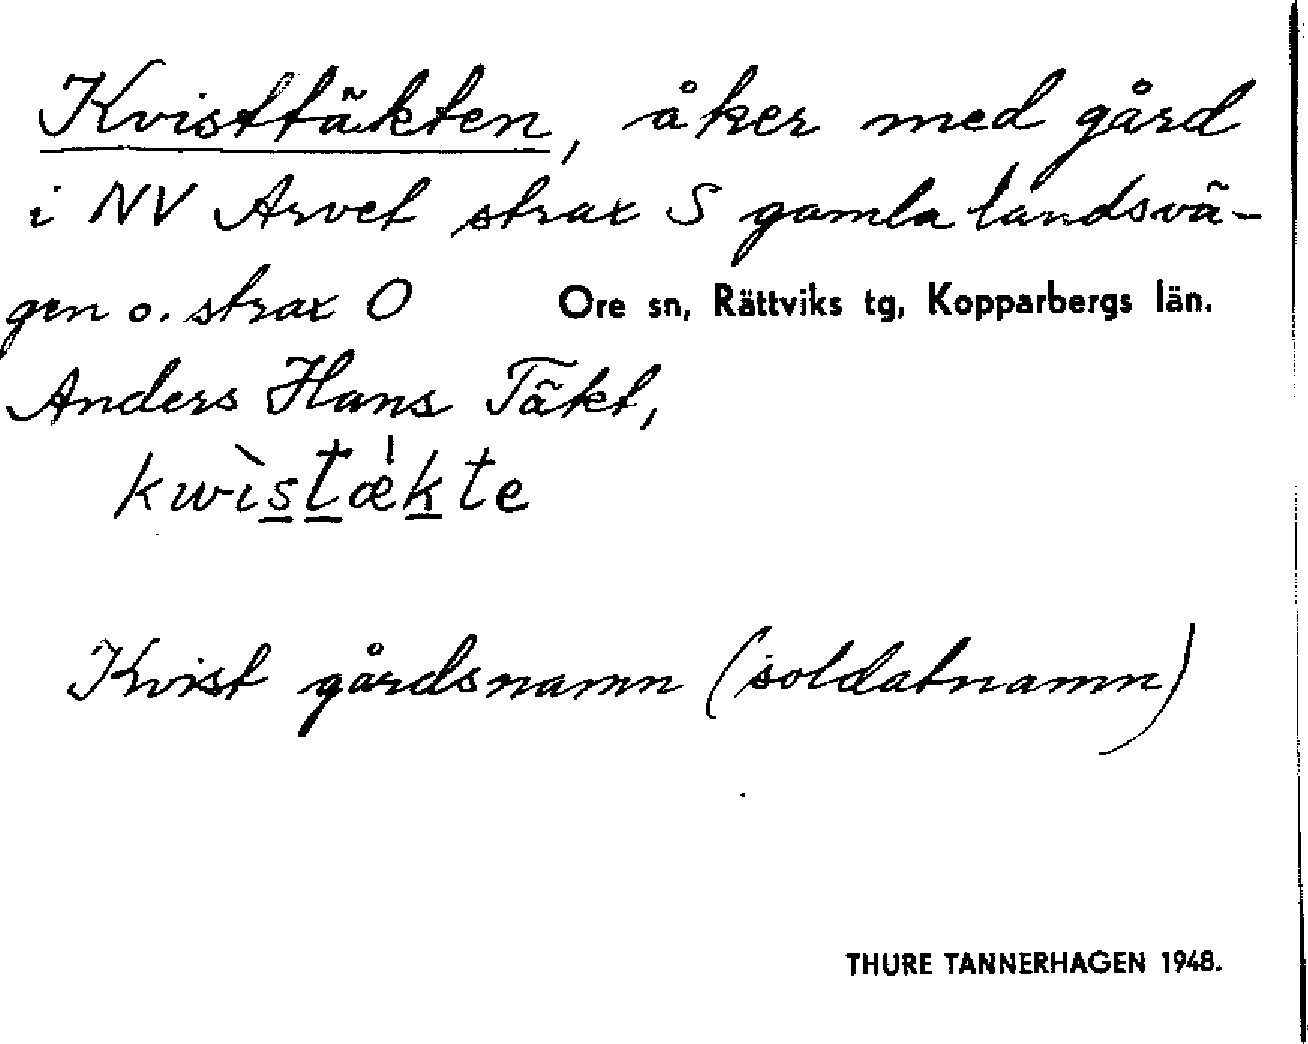 Kvisttäkten, åker med gård
i NV Arvet strax S gamla landsvä-
gen o. strax O Ore sn, Rättviks tg, Kopparbergs län.
Anders Hans Täkt,
kwìstæ̍kte
Kvist gårdsnamn (soldatnamn)
THURE TANNERHAGEN 1948.